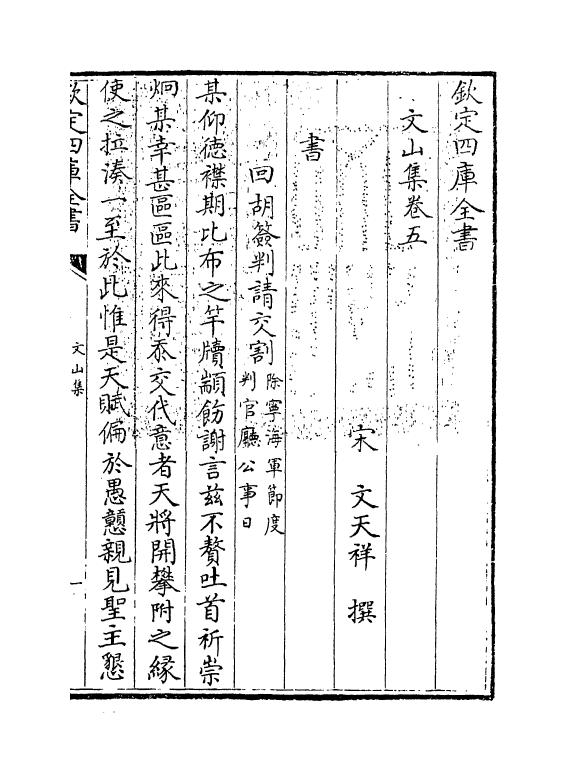 欽定四庫全書
文山集卷五
宋 文天祥 撰
書
回胡簽判請交割除寧海軍節度判官廳公事日
某仰德襟期比布之竿牘顓飭謝言兹不贅吐首祈崇
炯某幸甚區區比來得忝交代意者天將開攀附之縁
使之拉湊一至於此惟是天賦偏於愚戇親見聖主懇
欽定四庫全書
文山集
一